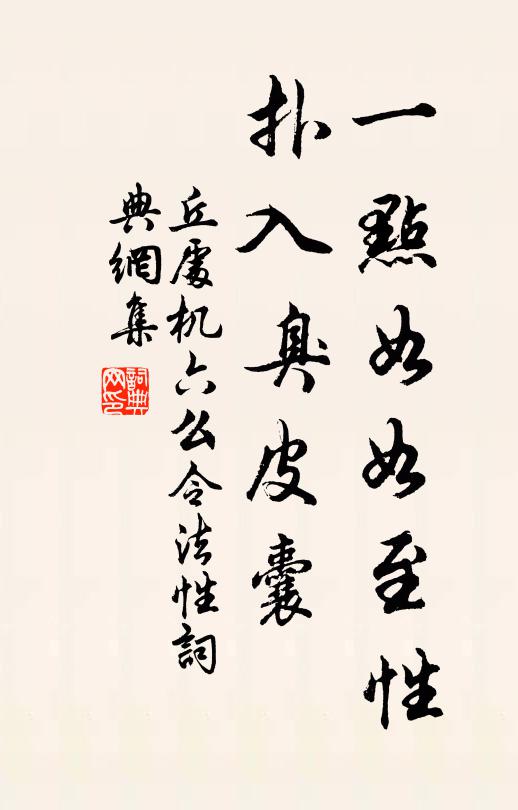 一點如如至性
扑入臭皮囊
丘處机六么令法性詞
典網集
詞典
网印